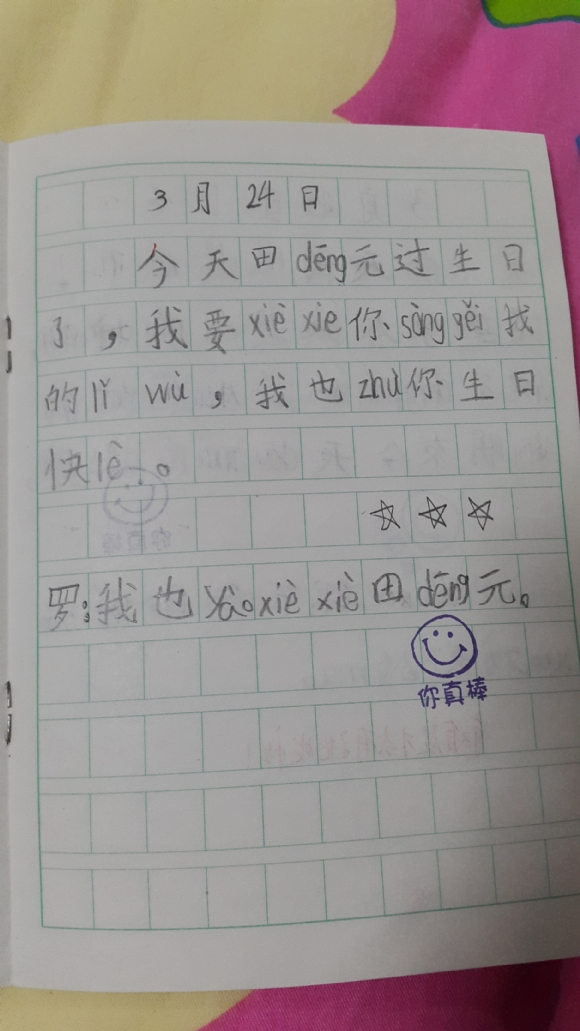 3月24日
今天田dēng元过生日
了，我要xiè xie你sòng gěi我
的lǐ wù，我也zhù你生日
快lè。
☆☆☆
罗：我也yào xiè xiè田dēng元。
你真棒